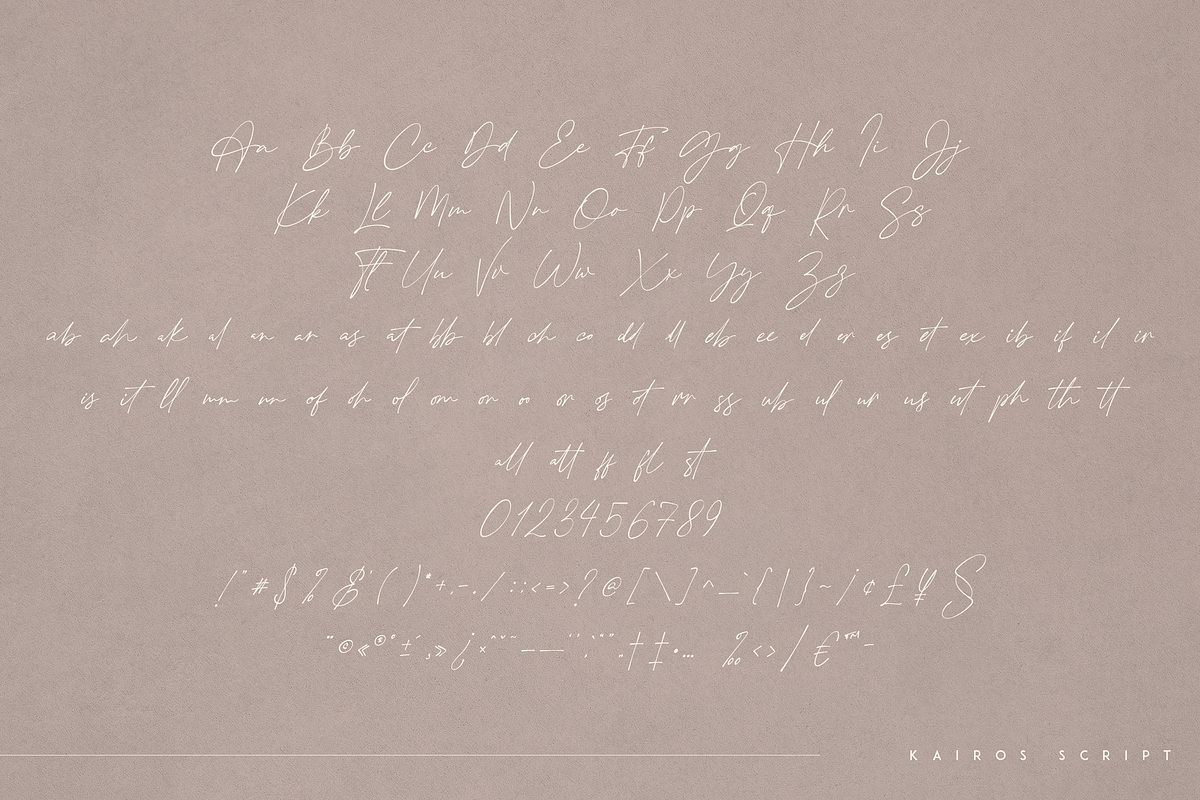 Aa Bb Cc Dd Ee Ff Gg Hh Ii Jj
Kk Ll Mm Nn Oo Pp Qq Rr Ss
Tt Uu Vv Ww Xx Yy Zz
ab ah ak al an ar as at bb bl ch co dd dl eb ee el er es et ex ib if il in
is it ll mm nn of oh ol om on oo or os ot rr ss ub ul ur us ut ph th tt
all att ff fl st
0123456789
! " # $ % & ' ( ) * + , - . / : ; < = > ? @ [ \ ] ^ _ ` { | } ~ ¡ ¢ £ ¥ §
¨ © « ® ° ± ´ ¸ » ¿ × ˆ ˇ ˜ – — ‘ ’ ‚ “ ” „ † ‡ • … ‰ ‹ › ⁄ € ™ −
KAIROS SCRIPT